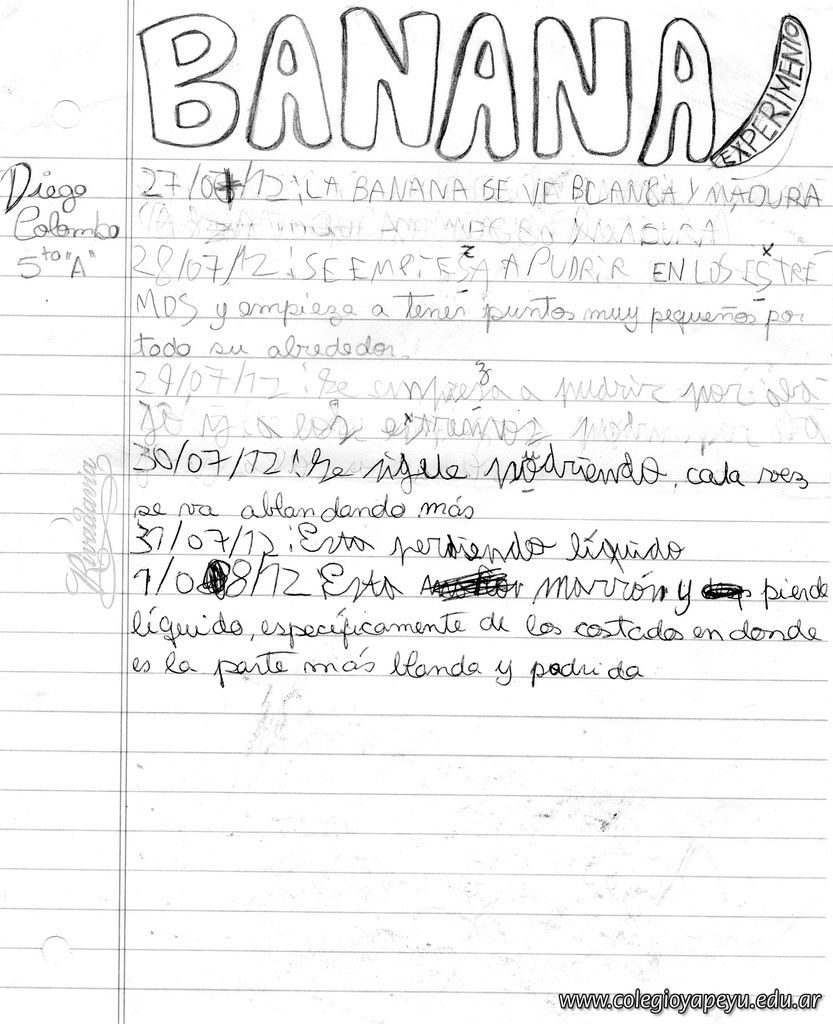 BANANA
EXPERIMENTO
Diego
Colombo
5to "A"
27/07/12: LA BANANA SE VE BLANCA Y MADURA
28/07/12: SE EMPIESA A PUDRIR EN LOS ESTRE
z x
MOS y empieza a tener puntos muy pequeños por
todo su alrededor.
29/07/12: Se empiesa a pudrir por aba
z
jo y a los estremos
x
30/07/12: Se sigue pudriendo, cada vez
se va ablandando más
31/07/12: Esta perdiendo líquido
1/08/12 Esta marrón y pierde
líquido, específicamente de los costados en donde
es la parte más blanda y podrida
Rivadavia
www.colegioyapeyu.edu.ar